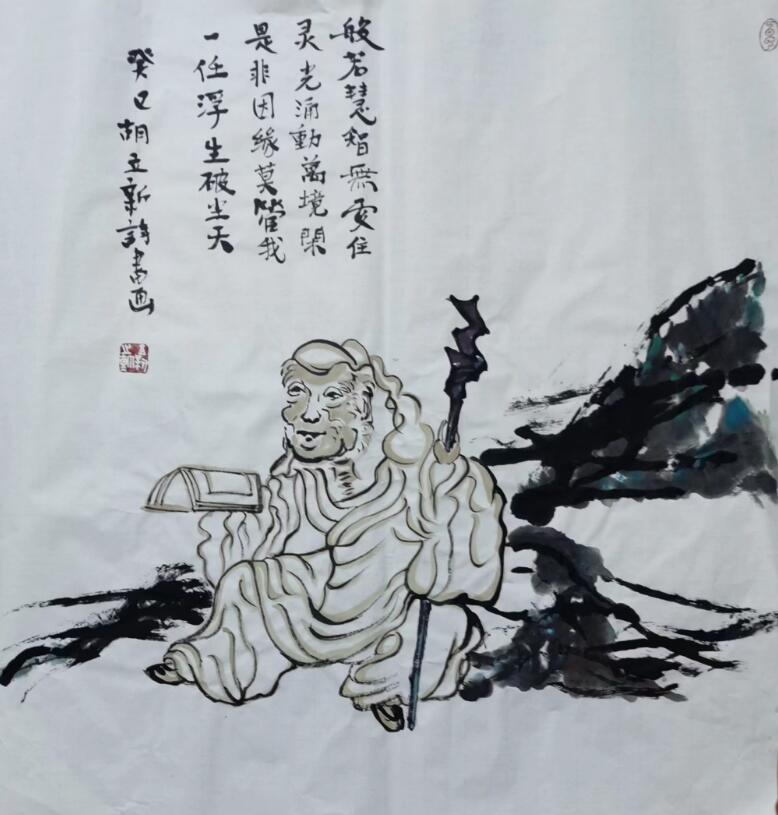 般若慧智無安住
灵光涌動萬境閑
是非因緣莫管我
一任浮生破尘天
癸巳胡立新詩書画